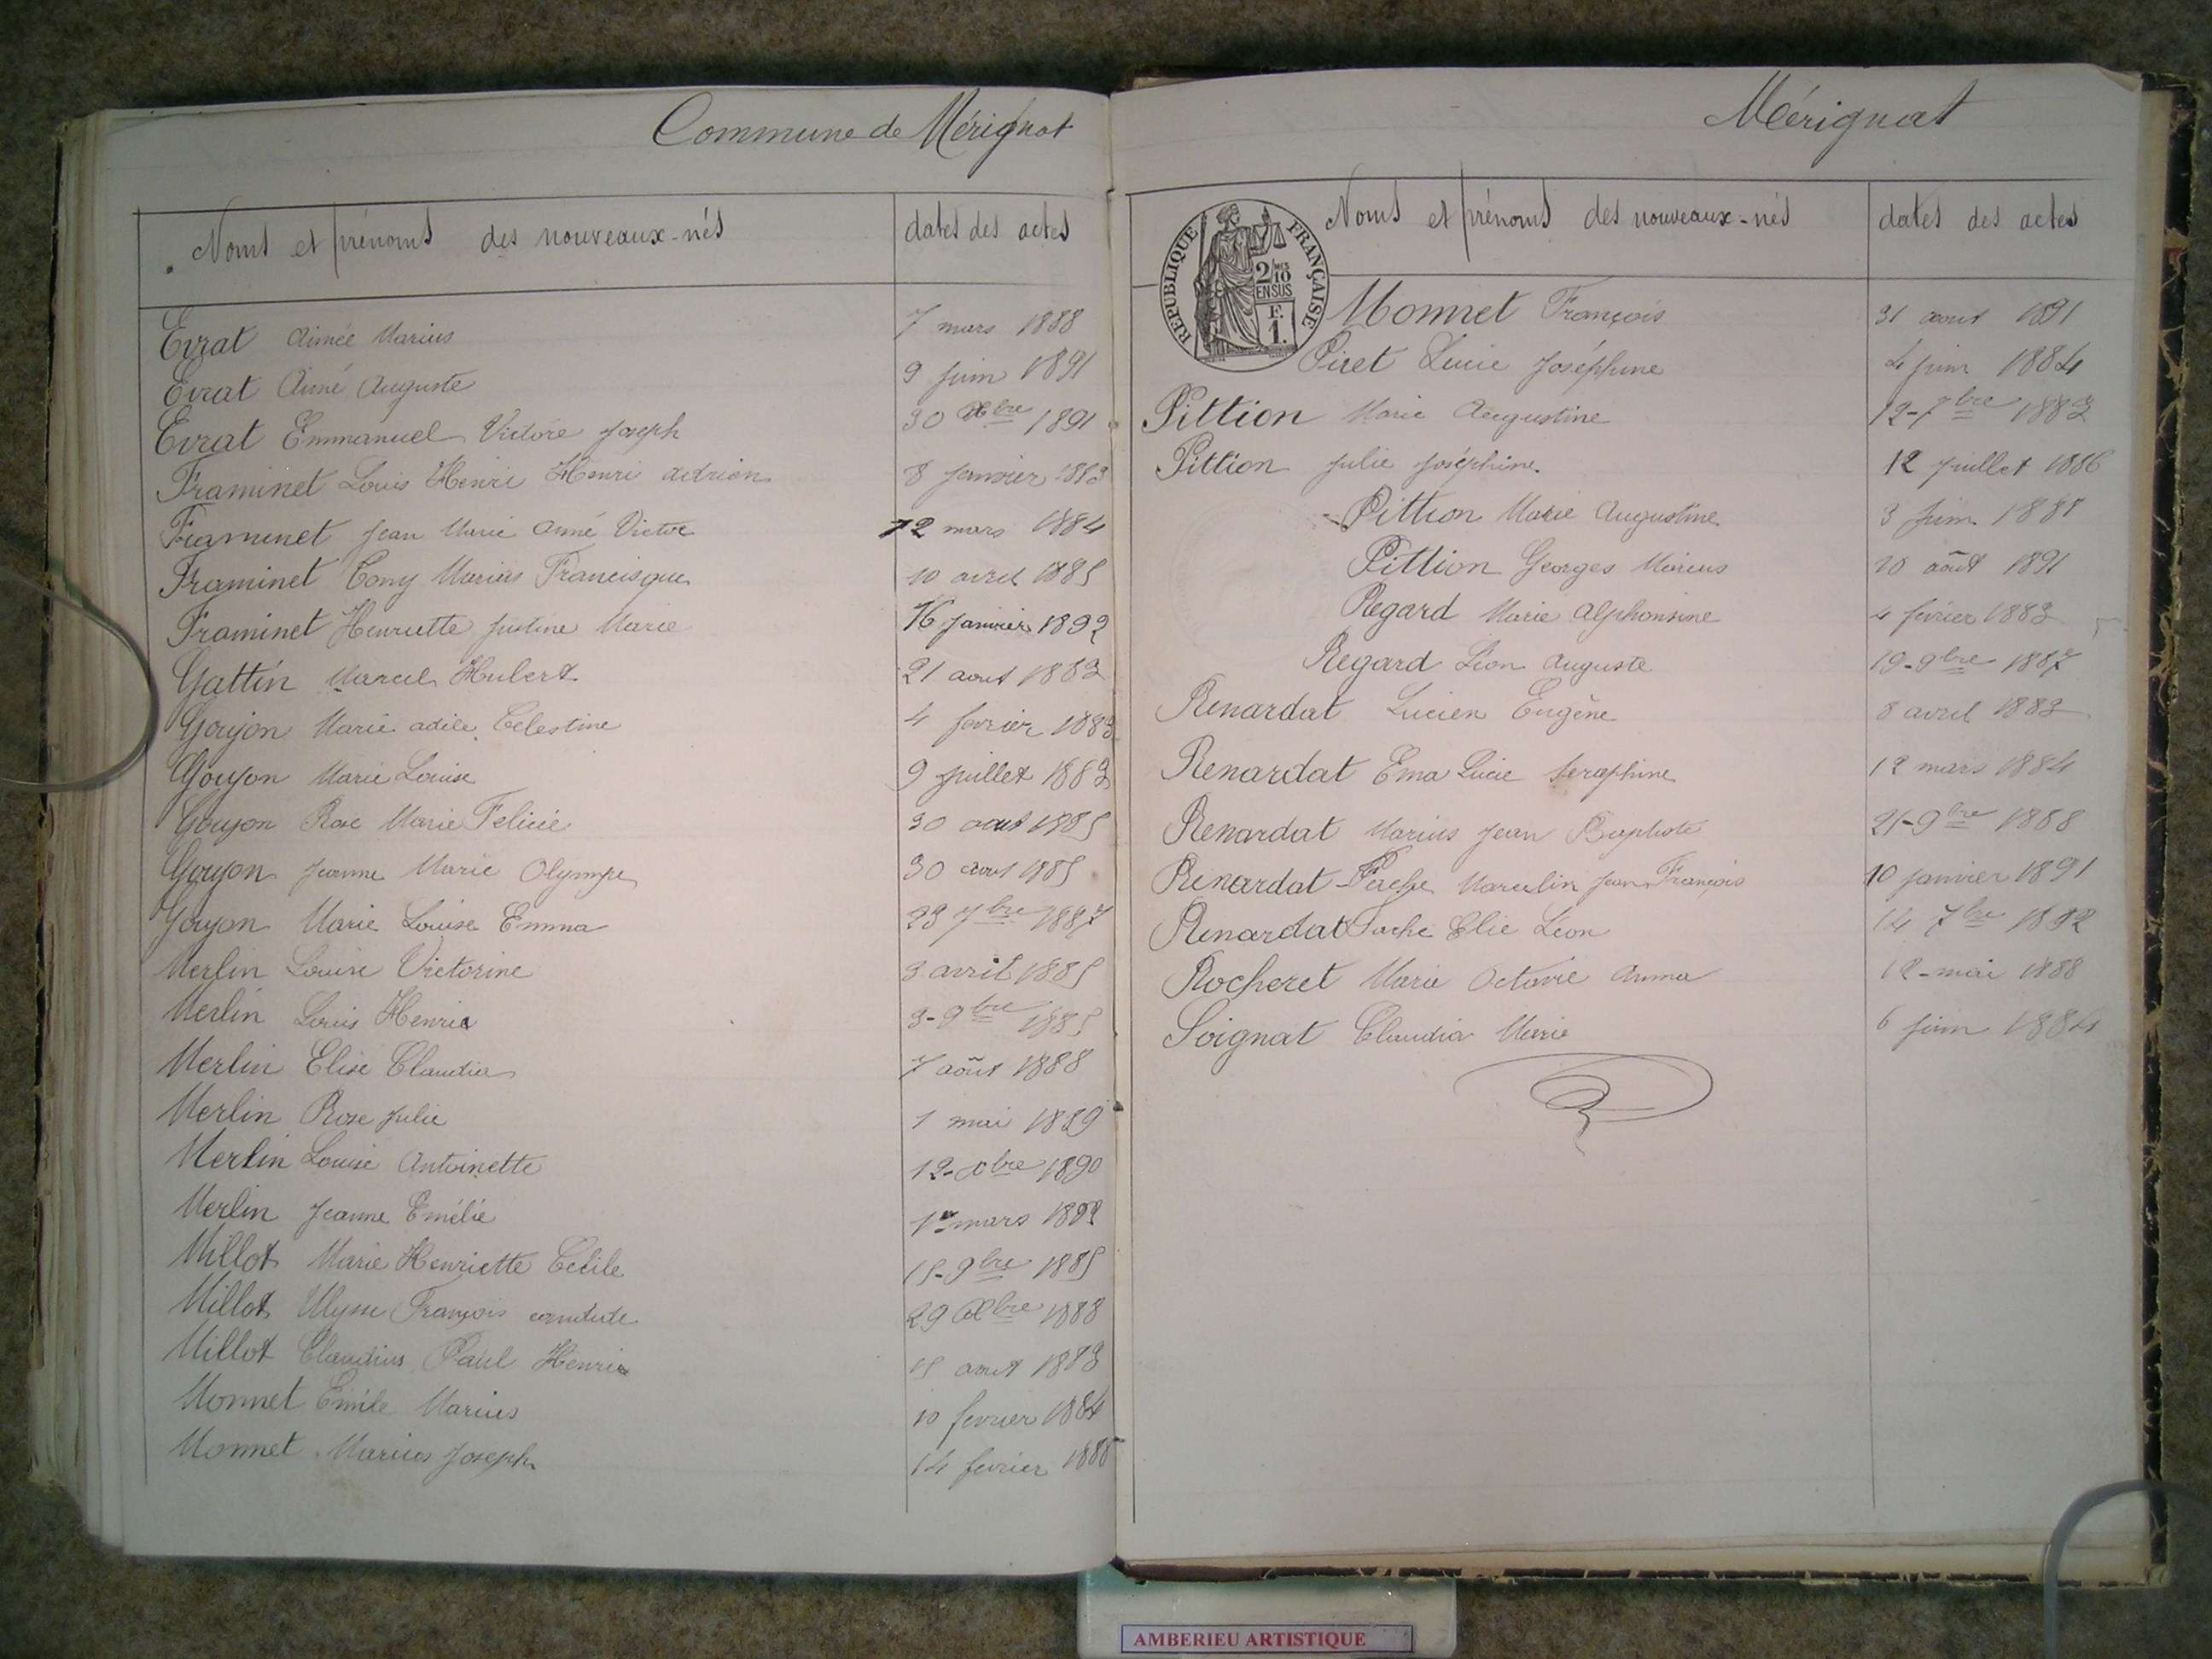 Commune de Mérignat
Noms et prénoms des nouveaux-nés dates des actes
Evrat Aimée Marius 7 mars 1888
Evrat Aimé Auguste 9 juin 1891
Evrat Emmanuel Victore Joseph 30 Xbre 1891
Framinet Louis Henri Henri adrien 8 janvier 1883
Framinet Jean Marie Aimé Victor 12 mars 1884
Framinet Tony Marius Francisque 10 avril 1885
Framinet Henriette Justine Marie 16 janvier 1892
Gattin Marcel Hubert 21 aout 1883
Goujon Marie adile Célestine 4 fevrier 1883
Goujon Marie Louise 9 juillet 1883
Goujon Rose Marie Felicie 30 aout 1885
Goujon Jeanne Marie Olympe 30 aout 1885
Goujon Marie Louise Emma 23 7bre 1887
Merlin Louise Victorine 3 avril 1885
Merlin Louis Henri 3-9bre 1885
Merlin Elise Claudia 7 août 1888
Merlin Rose Julie 1 mai 1889
Merlin Louise Antoinette 12-Xbre 1890
Merlin Jeanne Emélie 1er mars 1892
Millot Marie Henriette Cécile 15-9bre 1885
Millot Ulysse François 29 Xbre 1888
Millot Claudius Paul Henri 15 aout 1883
Monnet Emile Marius 10 fevrier 1884
Monnet Marius Joseph 14 fevrier 1888
Mérignat
Noms et prénoms des nouveaux-nés dates des actes
REPUBLIQUE FRANÇAISE
2/10 MES
EN SUS
F.
1.
Monnet François 31 aout 1891
Piret Lucie Joséphine 4 juin 1884
Pittion Marie Augustine 12-7bre 1883
Pittion Julie Joséphine 12 juillet 1886
Pittion Marie Augustine 3 juin 1888
Pittion Georges Marius 20 août 1891
Regard Marie Alphonsine 4 février 1883
Regard Léon Auguste 19-9bre 1887
Renardat Lucien Eugène 8 avril 1883
Renardat Ema Lucie Seraphine 12 mars 1884
Renardat Marius Jean Baptiste 21-9bre 1888
Renardat-Pache Marcelin Jean François 10 janvier 1891
Renardat Pache Elie Léon 14 7bre 1892
Rocheret Marie Octavie Anma 12-mai 1888
Soignat Claudia Marie 6 juin 1884
AMBERIEU ARTISTIQUE